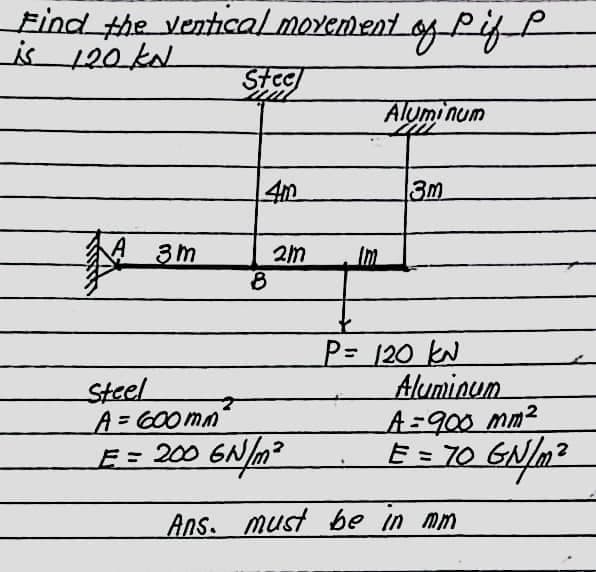 Find the vertical movement of P if P
is 120 kN
Steel
Aluminum
4m
3m
A
3m
2m
1m
B
P = 120 kN
Steel
Aluminum
A = 600 mm²
A = 900 mm²
E = 200 GN/m²
E = 70 GN/m²
Ans. must be in mm